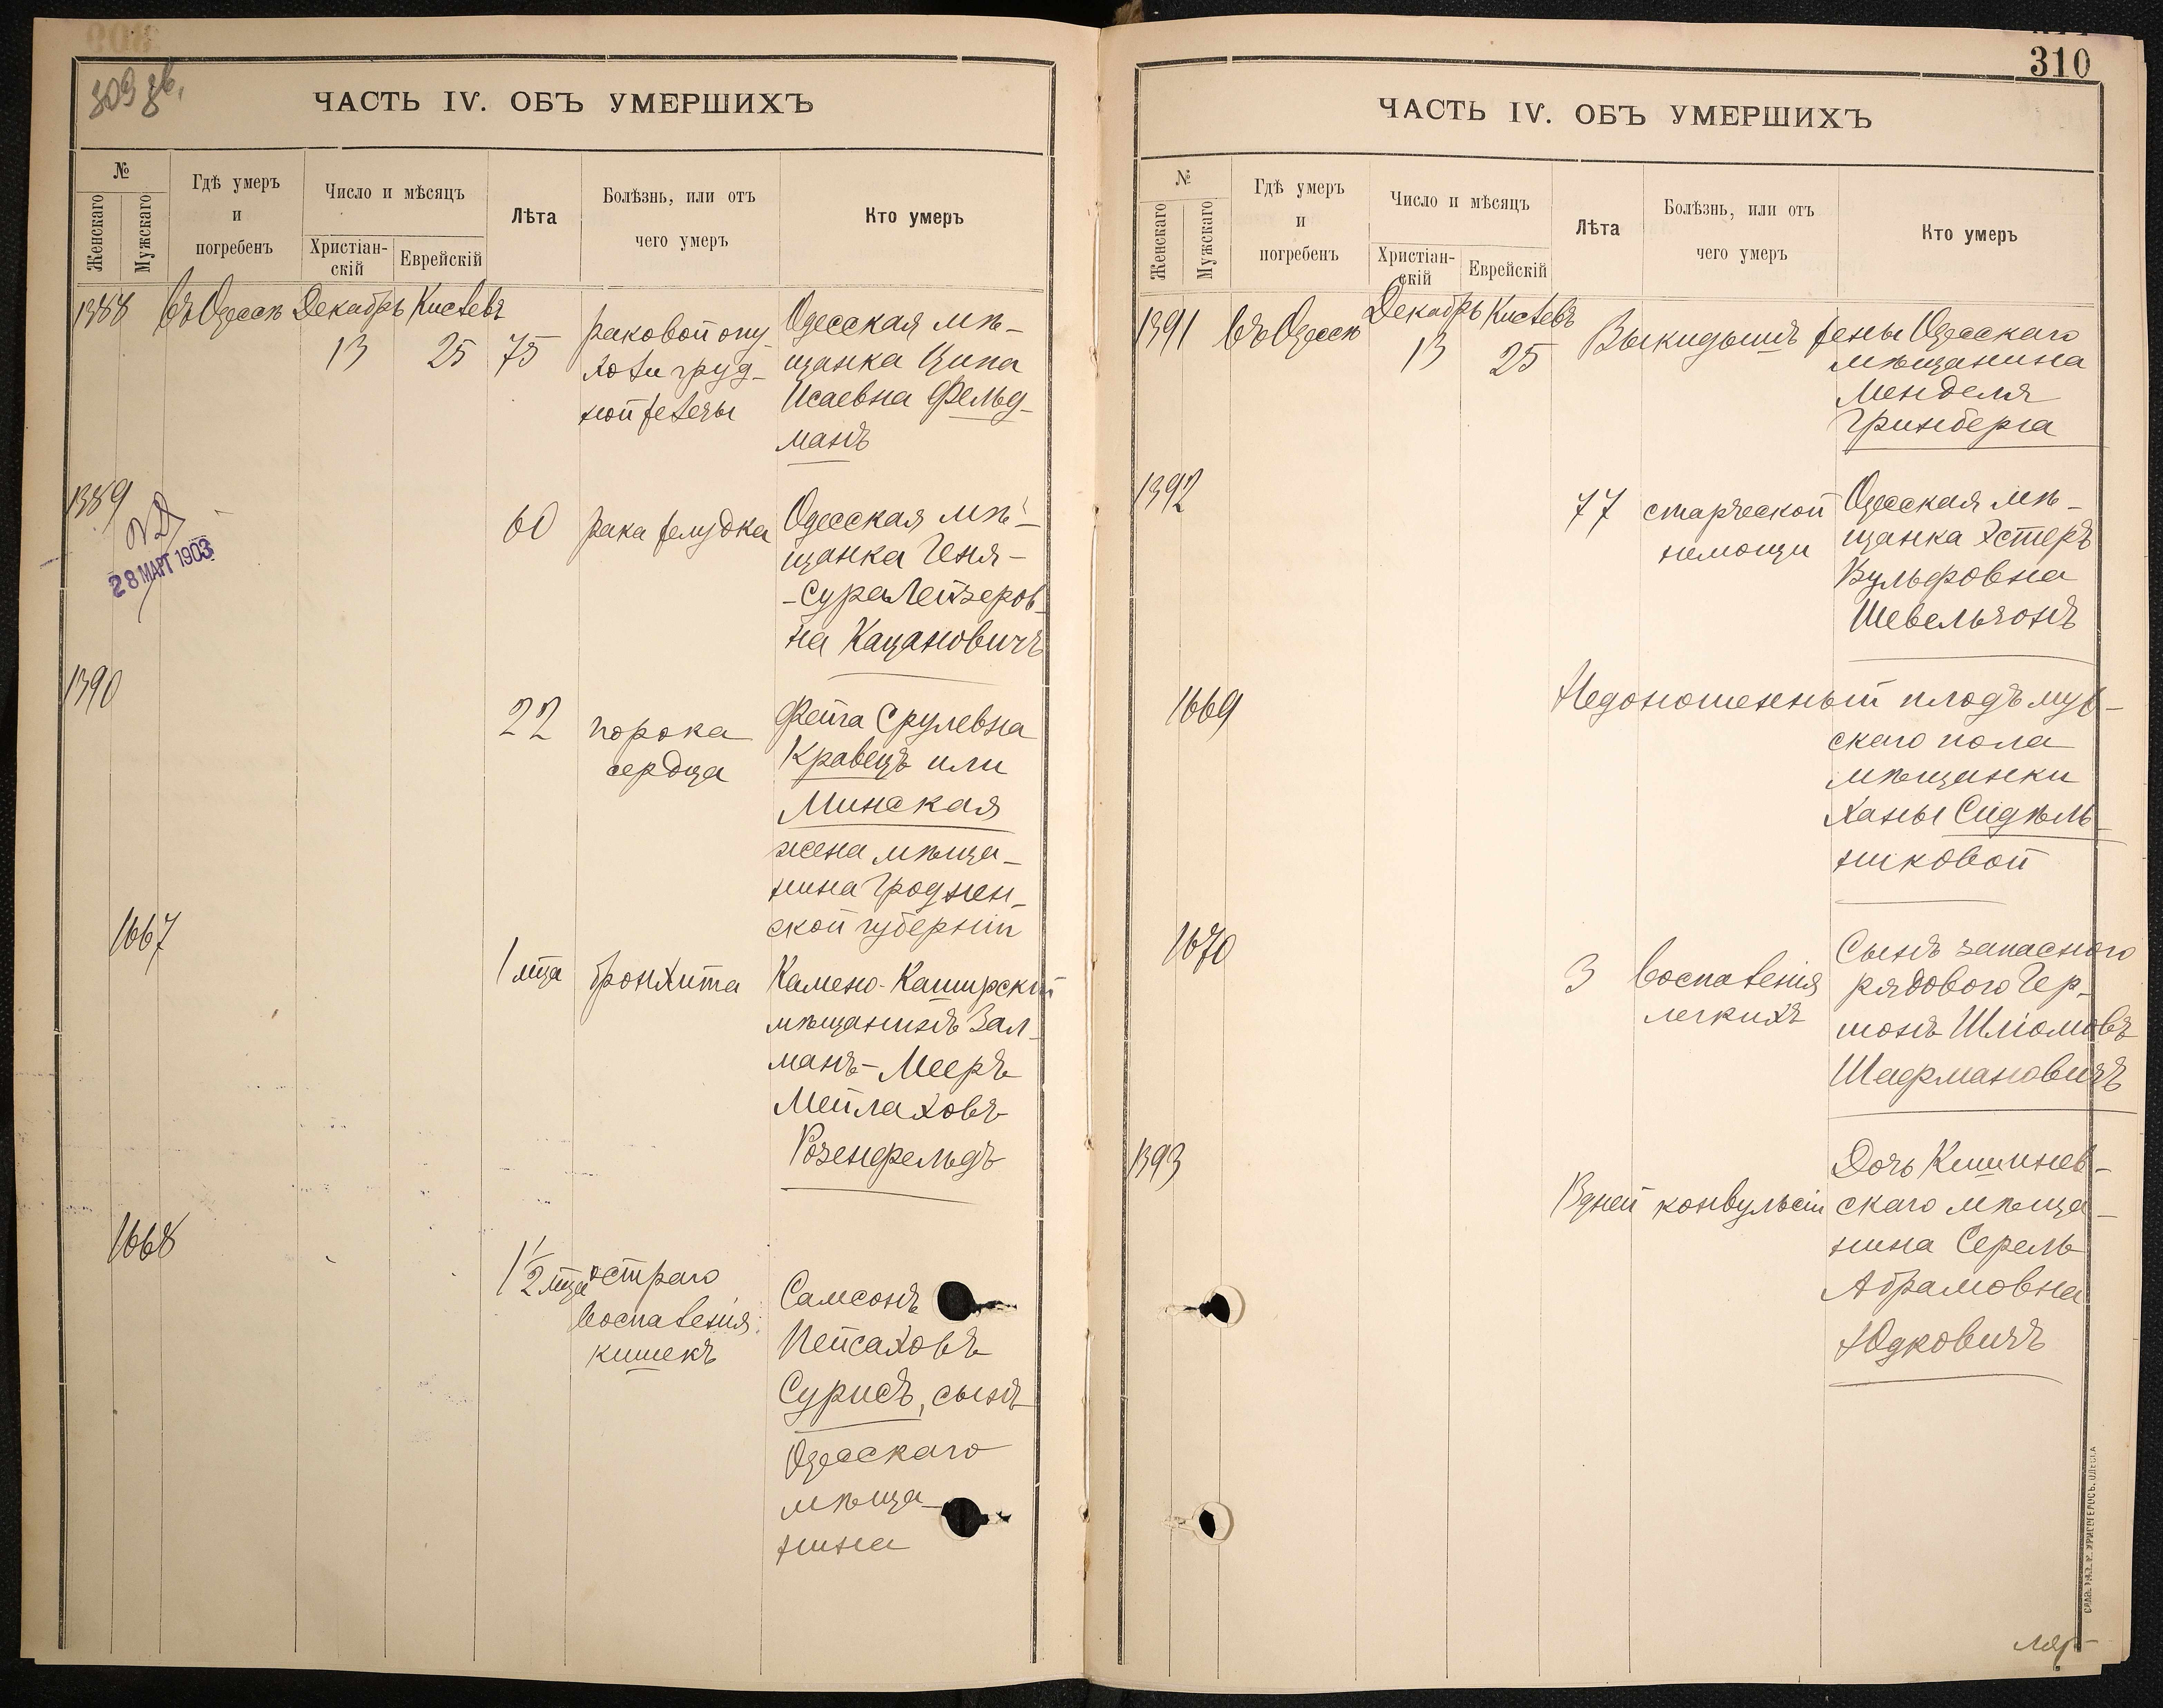 309 зв.
ЧАСТЬ IV. ОБЪ УМЕРШИХЪ
№
Женскаго
Мужскаго
Гдѣ умеръ
и
погребенъ
Число и мѣсяцъ
Христіан-
скій
Еврейскій
Лѣта
Болѣзнь, или отъ
чего умеръ
Кто умеръ
1388 въ Одессѣ Декабрь Кислевъ
13 25 75
раковой опу-
холи груд-
ной железы
Одесская мѣ-
щанка Ципа
Исаевна Фельд-
манъ
1389
28 МАРТ 1903
60 рака желудка
Одесская мѣ-
щанка Геня-
-Сура Лейзеров-
на Кацановичъ
1390
22 порока
сердца
Фейга Срулевна
Кравецъ или
Минская
жена мѣща-
нина Гроднен-
ской губерніи
1667
1 мца бронхита
Камено-Каширскій
мѣщанинъ Зал-
манъ-Мееръ
Мейлаховъ
Розенфельдъ
1668
1 1/2 мца остраго
воспаленія
кишекъ
Самсонъ
Пейсаховъ
Сурисъ, сынъ
Одесскаго
мѣща-
нина
310
ЧАСТЬ IV. ОБЪ УМЕРШИХЪ
№
Женскаго
Мужскаго
Гдѣ умеръ
и
погребенъ
Число и мѣсяцъ
Христіан-
скій
Еврейскій
Лѣта
Болѣзнь, или отъ
чего умеръ
Кто умеръ
1391 въ Одессѣ Декабрь Кислевъ
13 25
Выкидышъ жены Одесскаго
мѣщанина
Менделя
Гринберга
1392
77 старческой
немощи
Одесская мѣ-
щанка Эстеръ
Вульфовна
Шевельзонъ
1669
Недоношенный плодъ муж-
скаго пола
мѣщанки
Ханы Сидѣль-
никовой
1670
3 воспаленія
легкихъ
Сынъ запаснаго
рядового Гер-
шонъ Шліомовъ
Шафмановичъ
1393
8 дней конвульсіи
Дочь Кишинев-
скаго мѣща-
нина Серель
Абрамовна
Юдковичъ